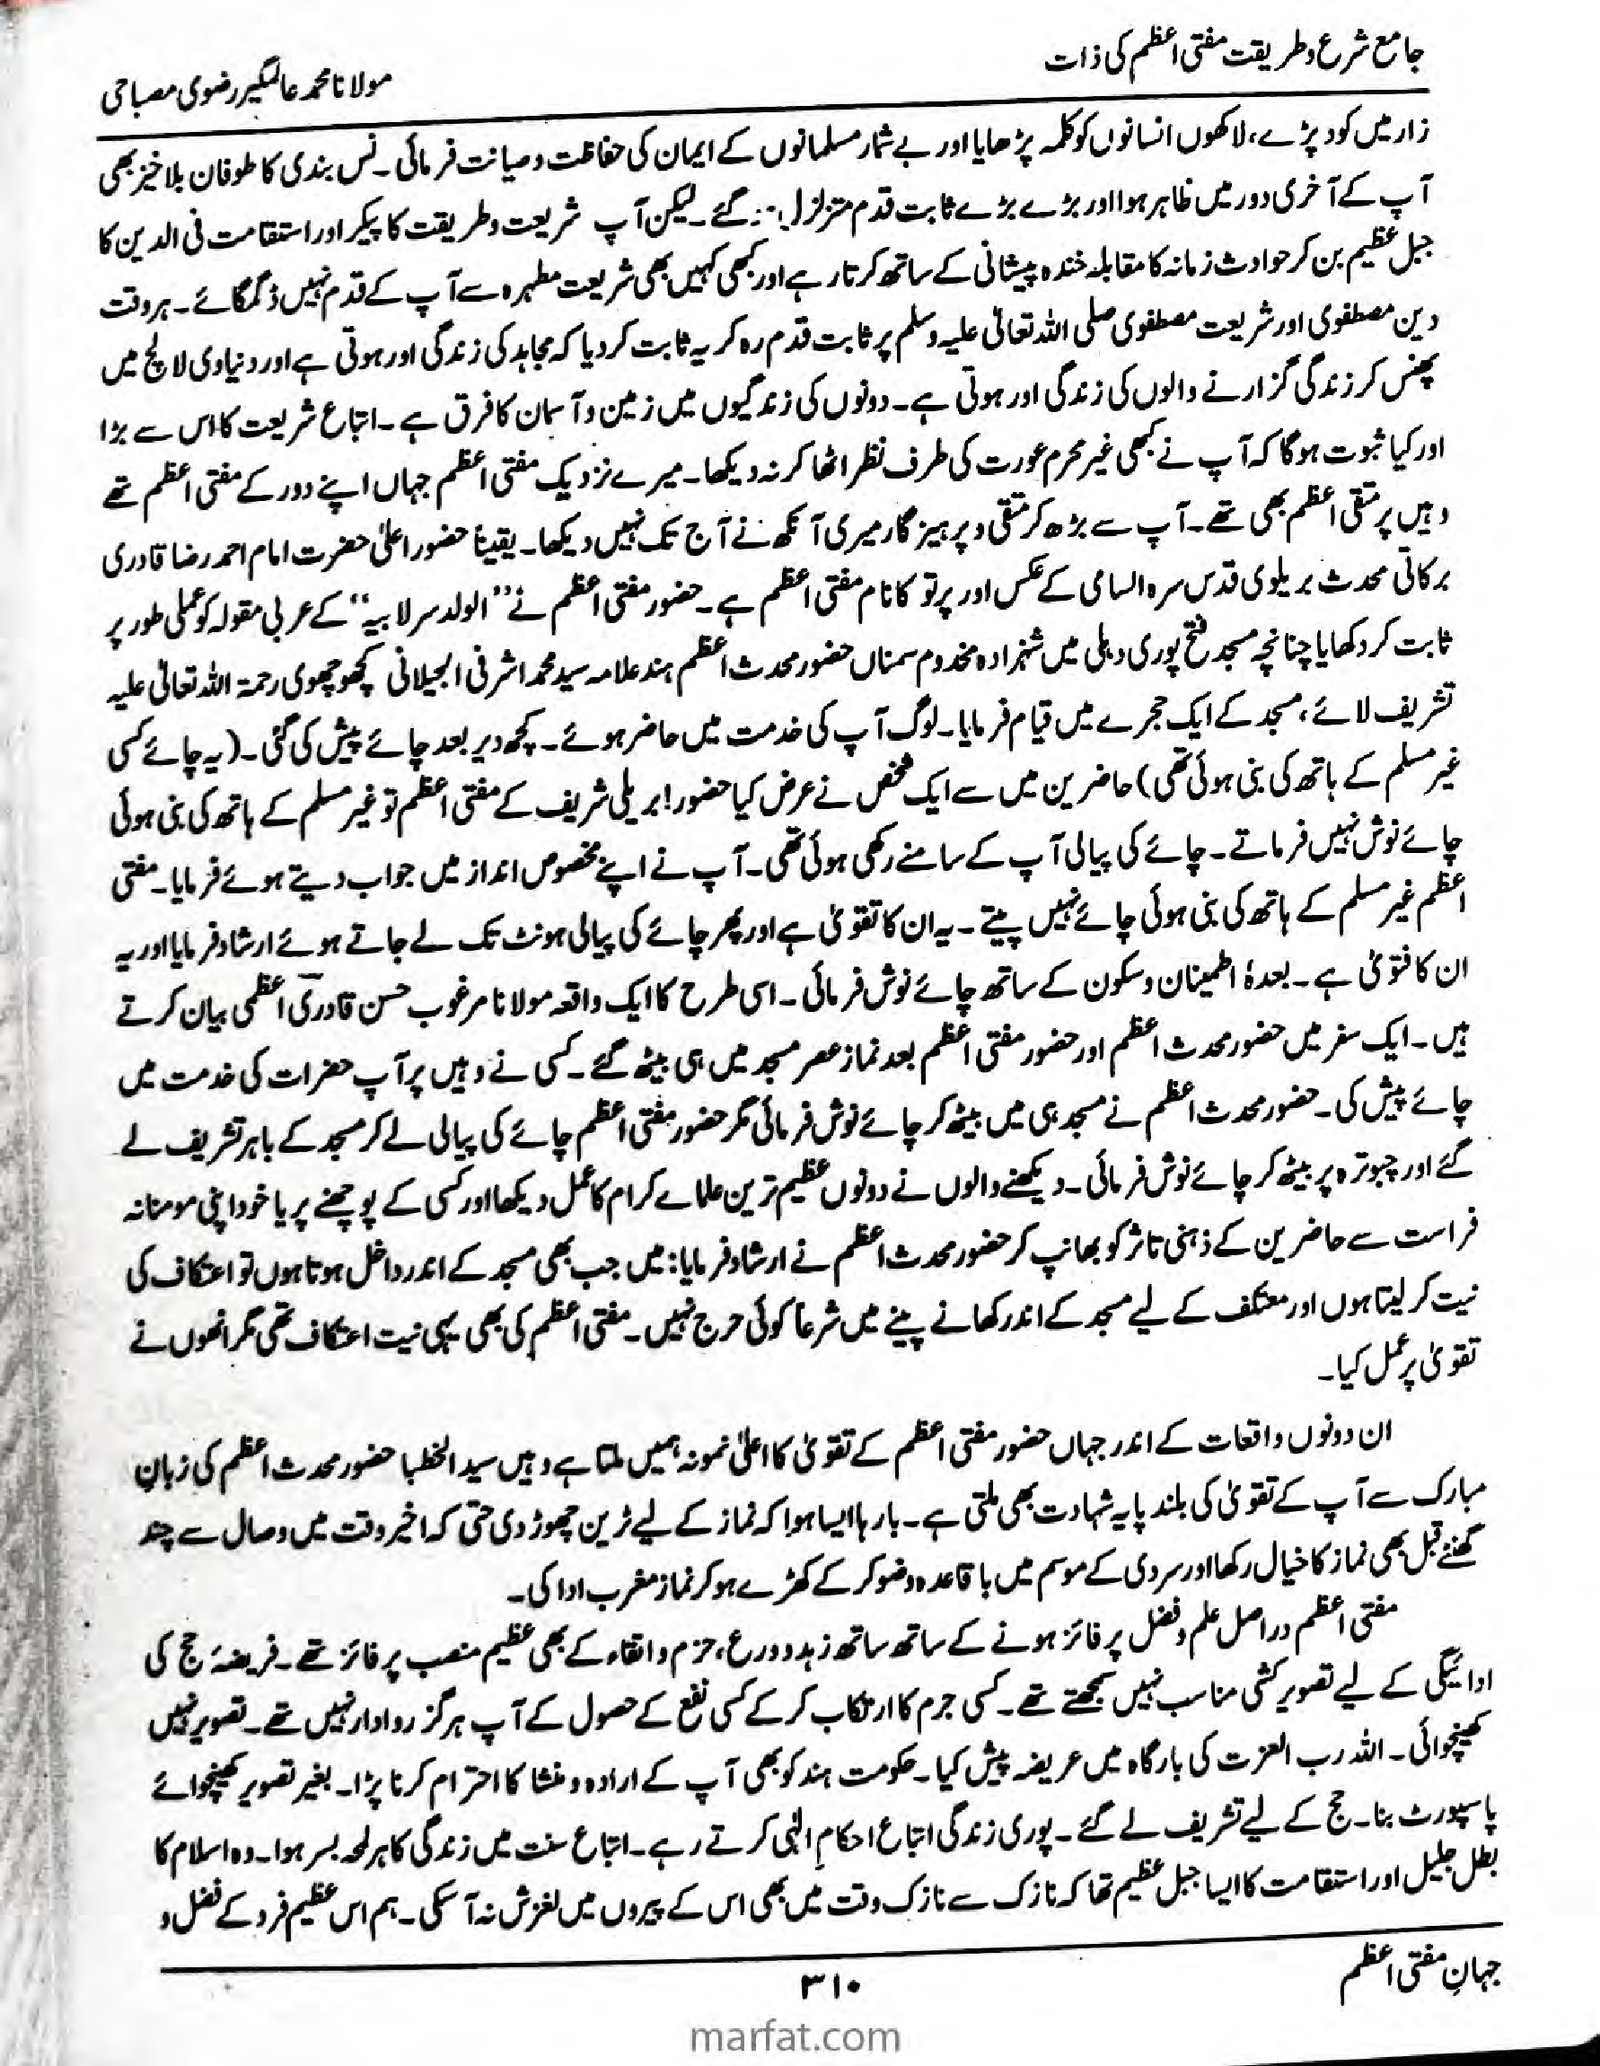 جامع شرع وطریقت مفتی اعظم کی ذات
مولانا محمد عالمگیر رضوی مصباحی
زار میں کود پڑے، لاکھوں انسانوں کو کلمہ پڑھایا اور بے شمار مسلمانوں کے ایمان کی حفاظت و صیانت فرمائی۔ نس بندی کا طوفان بلا خیز بھی
آپ کے آخری دور میں ظاہر ہوا اور بڑے بڑے ثابت قدم متزلزل گئے۔ لیکن آپ شریعت و طریقت کا پیکر اور استقامت فی الدین کا
جبل عظیم بن کر حوادث زمانہ کا مقابلہ خندہ پیشانی کے ساتھ کرتا رہے اور کبھی کہیں بھی شریعت مطہرہ سے آپ کے قدم نہیں ڈگمگائے۔ ہر وقت
دین مصطفوی اور شریعت مصطفوی صلی اللہ تعالیٰ علیہ وسلم پر ثابت قدم رہ کر یہ ثابت کر دیا کہ مجاہد کی زندگی اور ہوتی ہے اور دنیاوی لالچ میں
پھنس کر زندگی گزارنے والوں کی زندگی اور ہوتی ہے۔ دونوں کی زندگیوں میں زمین و آسمان کا فرق ہے۔ اتباع شریعت کا اس سے بڑا
اور کیا ثبوت ہوگا کہ آپ نے کبھی غیر محرم عورت کی طرف نظر اٹھا کر نہ دیکھا۔ میرے نزدیک مفتی اعظم جہاں اپنے دور کے مفتی اعظم تھے
وہیں پر متقی اعظم بھی تھے۔ آپ سے بڑھ کر متقی و پرہیزگار میری آنکھ نے آج تک نہیں دیکھا۔ یقیناً حضور اعلیٰ حضرت امام احمد رضا قادری
برکاتی محدث بریلوی قدس سرہ السامی کے عکس اور پرتو کا نام مفتی اعظم ہے۔ حضور مفتی اعظم نے ’’الولد سر لابیہ‘‘ کے عربی مقولہ کو عملی طور پر
ثابت کر دکھایا چنانچہ مسجد فتح پوری دہلی میں شہزادہ مخدوم سمناں حضور محدث اعظم ہند علامہ سید محمد اشرفی الجیلانی کچھوچھوی رحمۃ اللہ تعالیٰ علیہ
تشریف لائے، مسجد کے ایک حجرے میں قیام فرمایا۔ لوگ آپ کی خدمت میں حاضر ہوئے۔ کچھ دیر بعد چائے پیش کی گئی۔ (یہ چائے کسی
غیر مسلم کے ہاتھ کی بنی ہوئی تھی) حاضرین میں سے ایک شخص نے عرض کیا حضور! بریلی شریف کے مفتی اعظم تو غیر مسلم کے ہاتھ کی بنی ہوئی
چائے نوش نہیں فرماتے۔ چائے کی پیالی آپ کے سامنے رکھی ہوئی تھی۔ آپ نے اپنے مخصوص انداز میں جواب دیتے ہوئے فرمایا۔ مفتی
اعظم غیر مسلم کے ہاتھ کی بنی ہوئی چائے نہیں پیتے۔ یہ ان کا تقویٰ ہے اور پھر چائے کی پیالی ہونٹ تک لے جاتے ہوئے ارشاد فرمایا اور یہ
ان کا فتویٰ ہے۔ بعدہٗ اطمینان و سکون کے ساتھ چائے نوش فرمائی۔ اسی طرح کا ایک واقعہ مولانا مرغوب حسن قادری اعظمی بیان کرتے
ہیں۔ ایک سفر میں حضور محدث اعظم اور حضور مفتی اعظم بعد نماز عصر مسجد میں ہی بیٹھ گئے۔ کسی نے وہیں پر آپ حضرات کی خدمت میں
چائے پیش کی۔ حضور محدث اعظم نے مسجد ہی میں بیٹھ کر چائے نوش فرمائی مگر حضور مفتی اعظم چائے کی پیالی لے کر مسجد کے باہر تشریف لے
گئے اور چبوترہ پر بیٹھ کر چائے نوش فرمائی۔ دیکھنے والوں نے دونوں عظیم ترین علمائے کرام کا عمل دیکھا اور کسی کے پوچھنے پر یا خود اپنی مومنانہ
فراست سے حاضرین کے ذہنی تاثر کو بھانپ کر حضور محدث اعظم نے ارشاد فرمایا: میں جب بھی مسجد کے اندر داخل ہوتا ہوں تو اعتکاف کی
نیت کر لیتا ہوں اور معتکف کے لیے مسجد کے اندر کھانے پینے میں شرعاً کوئی حرج نہیں۔ مفتی اعظم کی بھی یہی نیت اعتکاف تھی مگر انھوں نے
تقویٰ پر عمل کیا۔
ان دونوں واقعات کے اندر جہاں حضور مفتی اعظم کے تقویٰ کا اعلیٰ نمونہ ہمیں ملتا ہے وہیں سید الخطبا حضور محدث اعظم کی زبانِ
مبارک سے آپ کے تقویٰ کی بلند پایہ شہادت بھی ملتی ہے۔ بارہا ایسا ہوا کہ نماز کے لیے ٹرین چھوڑ دی حتی کہ اخیر وقت میں وصال سے چند
گھنٹے قبل بھی نماز کا خیال رکھا اور سردی کے موسم میں باقاعدہ وضو کر کے کھڑے ہو کر نماز مغرب ادا کی۔
مفتی اعظم دراصل علم و فضل پر فائز ہونے کے ساتھ ساتھ زہد و ورع، حزم و اتقاء کے بھی عظیم منصب پر فائز تھے۔ فریضۂ حج کی
ادائیگی کے لیے تصویر کشی مناسب نہیں سمجھتے تھے۔ کسی جرم کا ارتکاب کر کے کسی نفع کے حصول کے آپ ہرگز روادار نہیں تھے۔ تصویر نہیں
کھینچوائی۔ اللہ رب العزت کی بارگاہ میں عریضہ پیش کیا۔ حکومت ہند کو بھی آپ کے ارادہ و منشا کا احترام کرنا پڑا۔ بغیر تصویر کھینچوائے
پاسپورٹ بنا۔ حج کے لیے تشریف لے گئے۔ پوری زندگی اتباع احکامِ الٰہی کرتے رہے۔ اتباع سنت میں زندگی کا ہر لمحہ بسر ہوا۔ وہ اسلام کا
بطل جلیل اور استقامت کا ایسا جبل عظیم تھا کہ نازک سے نازک وقت میں بھی اس کے پیروں میں لغزش نہ آسکی۔ ہم اس عظیم فرد کے فضل و
جہانِ مفتی اعظم
۳۱۰
marfat.com